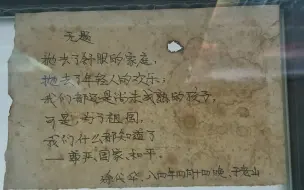 无题
抛去了舒服的家庭,
抛去了年轻人的欢乐;
我们都是尚未成熟的孩子,
可是,为了祖国,
我们什么都知道了
——尊严、国家、和平。
八四年四月十四晚,于老山